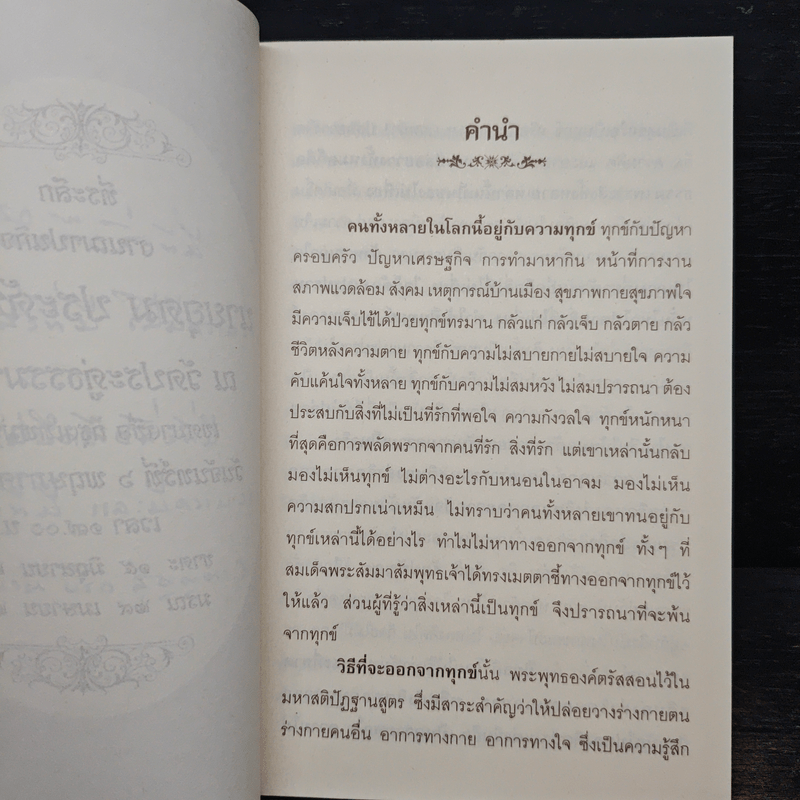 คำนำ
คนทั้งหลายในโลกนี้อยู่กับความทุกข์ ทุกข์กับปัญหา
ครอบครัว ปัญหาเศรษฐกิจ การทำมาหากิน หน้าที่การงาน
สภาพแวดล้อม สังคม เหตุการณ์บ้านเมือง สุขภาพกายสุขภาพใจ
มีความเจ็บไข้ได้ป่วยทุกข์ทรมาน กลัวแก่ กลัวเจ็บ กลัวตาย กลัว
ชีวิตหลังความตาย ทุกข์กับความไม่สบายกายไม่สบายใจ ความ
คับแค้นใจทั้งหลาย ทุกข์กับความไม่สมหวัง ไม่สมปรารถนา ต้อง
ประสบกับสิ่งที่ไม่เป็นที่รักที่พอใจ ความกังวลใจ ทุกข์หนักหนา
ที่สุดคือการพลัดพรากจากคนที่รัก สิ่งที่รัก แต่เขาเหล่านั้นกลับ
มองไม่เห็นทุกข์ ไม่ต่างอะไรกับหนอนในอาจม มองไม่เห็น
ความสกปรกเน่าเหม็น ไม่ทราบว่าคนทั้งหลายเขาทนอยู่กับ
ทุกข์เหล่านี้ได้อย่างไร ทำไมไม่หาทางออกจากทุกข์ ทั้งๆ ที่
สมเด็จพระสัมมาสัมพุทธเจ้าได้ทรงเมตตาชี้ทางออกจากทุกข์ไว้
ให้แล้ว ส่วนผู้ที่รู้ว่าสิ่งเหล่านี้เป็นทุกข์ จึงปรารถนาที่จะพ้น
จากทุกข์
วิธีที่จะออกจากทุกข์นั้น พระพุทธองค์ตรัสสอนไว้ใน
มหาสติปัฏฐานสูตร ซึ่งมีสาระสำคัญว่าให้ปล่อยวางร่างกายตน
ร่างกายคนอื่น อาการทางกาย อาการทางใจ ซึ่งเป็นความรู้สึก